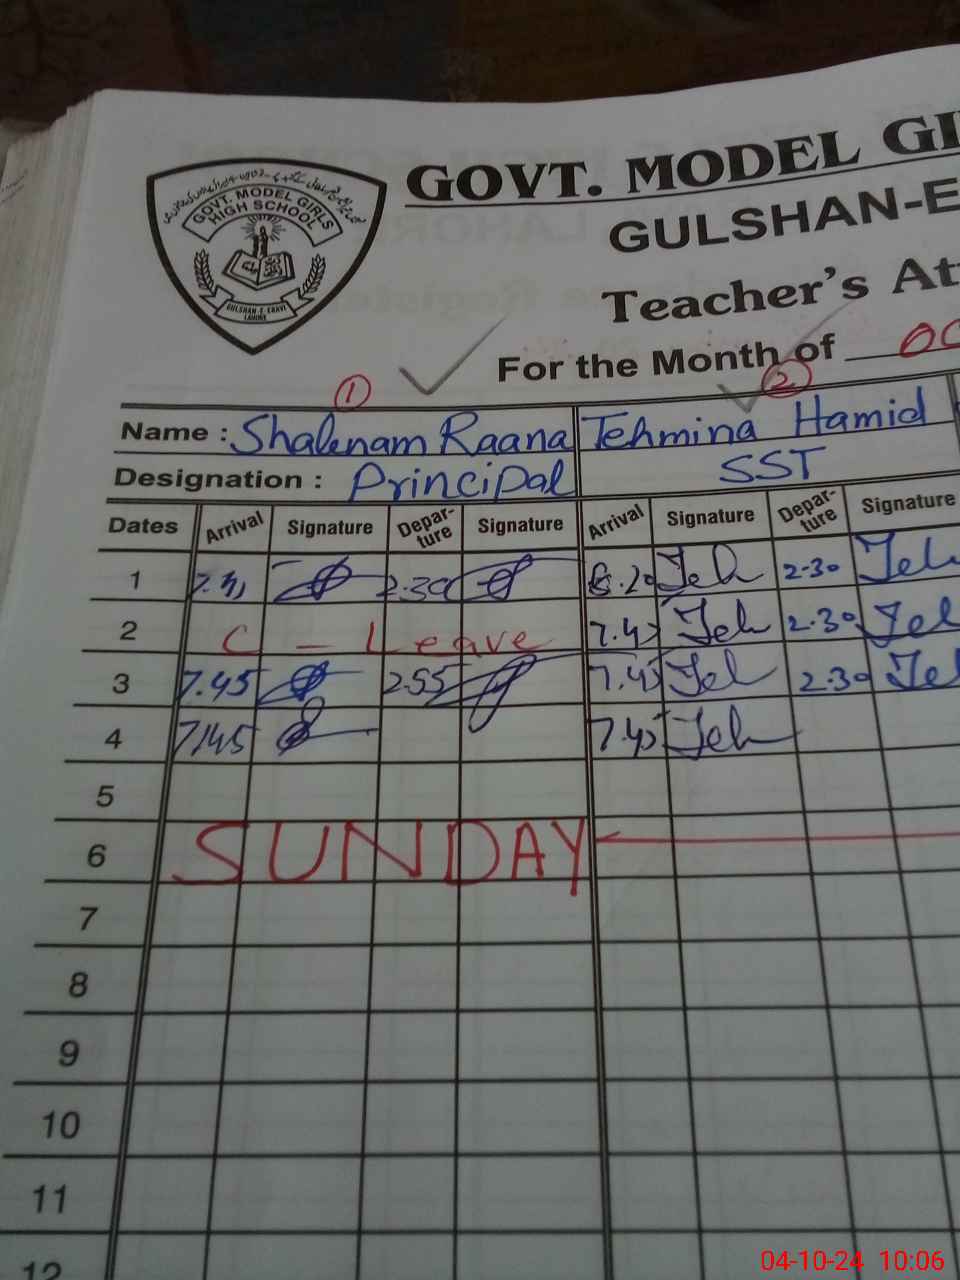 GOVT. MODEL GI
GULSHAN-E
Teacher's At
For the Month of OC
GOVT. MODEL GIRLS
HIGH SCHOOL
GULSHAN-E-RAVI
LAHORE
1 2
Name : Shabnam Raana Tehmina Hamid
Designation : Principal SST
Dates Arrival Signature Depar-ture Signature Arrival Signature Depar-ture Signature
1 2.30 8.20 Teh 2-30 Teh
2 C - Leave 7.45 Teh 2.30 Teh
3 7.45 2.55 7.45 Teh 2.30 Teh
4 7:45 7.45 Teh
5
6 SUNDAY
7
8
9
10
11
12
04-10-24 10:06